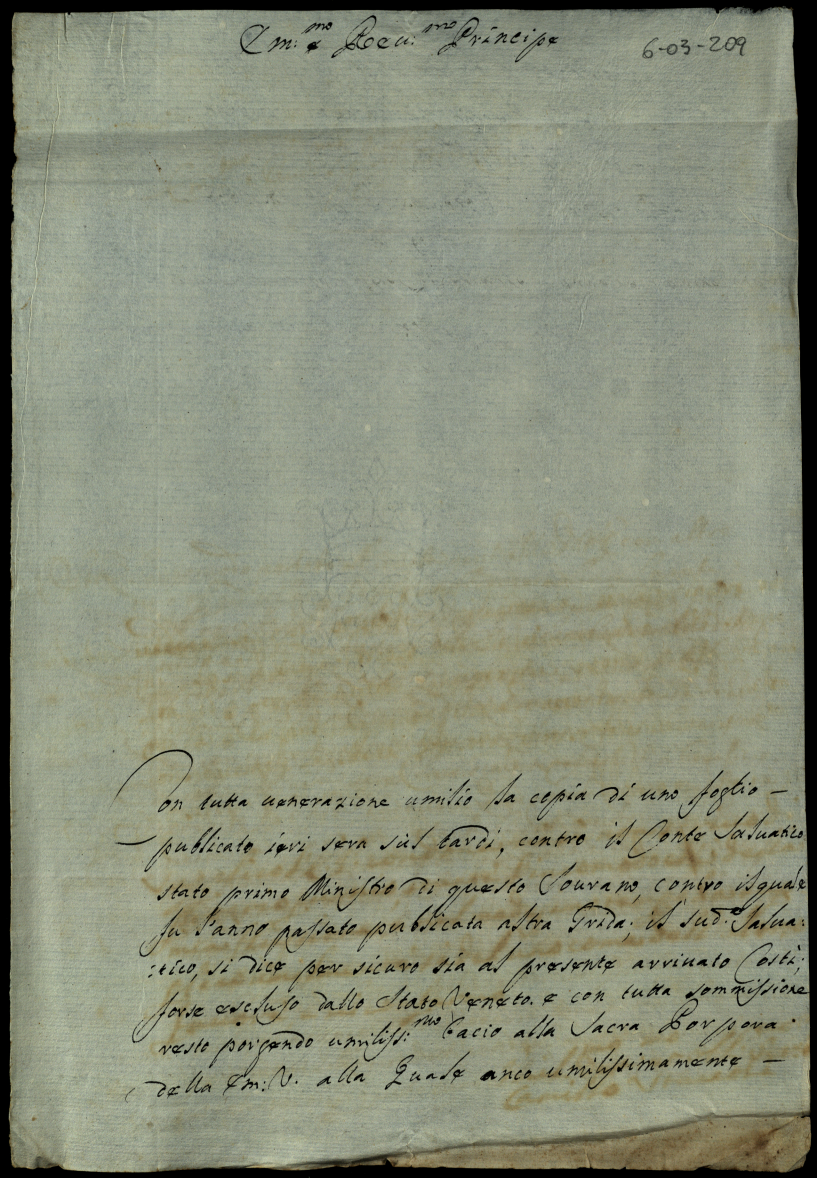 Em:mo e Reu:mo Principe
6-03-209
Con tutta uenerazione umilio la copia di uno foglio –
publicato ieri sera sùl tardi, contro il Conte Saluatico
stato primo Ministro di questo Sourano, contro il quale
fu l'anno passato publicata altra Grida; il sud.o Salua:
:tico, si dice per sicuro sia al presente arriuato Costì;
forse escluso dallo Stato Veneto. e con tutta sommissione
resto porgendo umiliss:mo bacio alla Sacra Porpora
della Em: V. alla Quale anco umilissimamente –